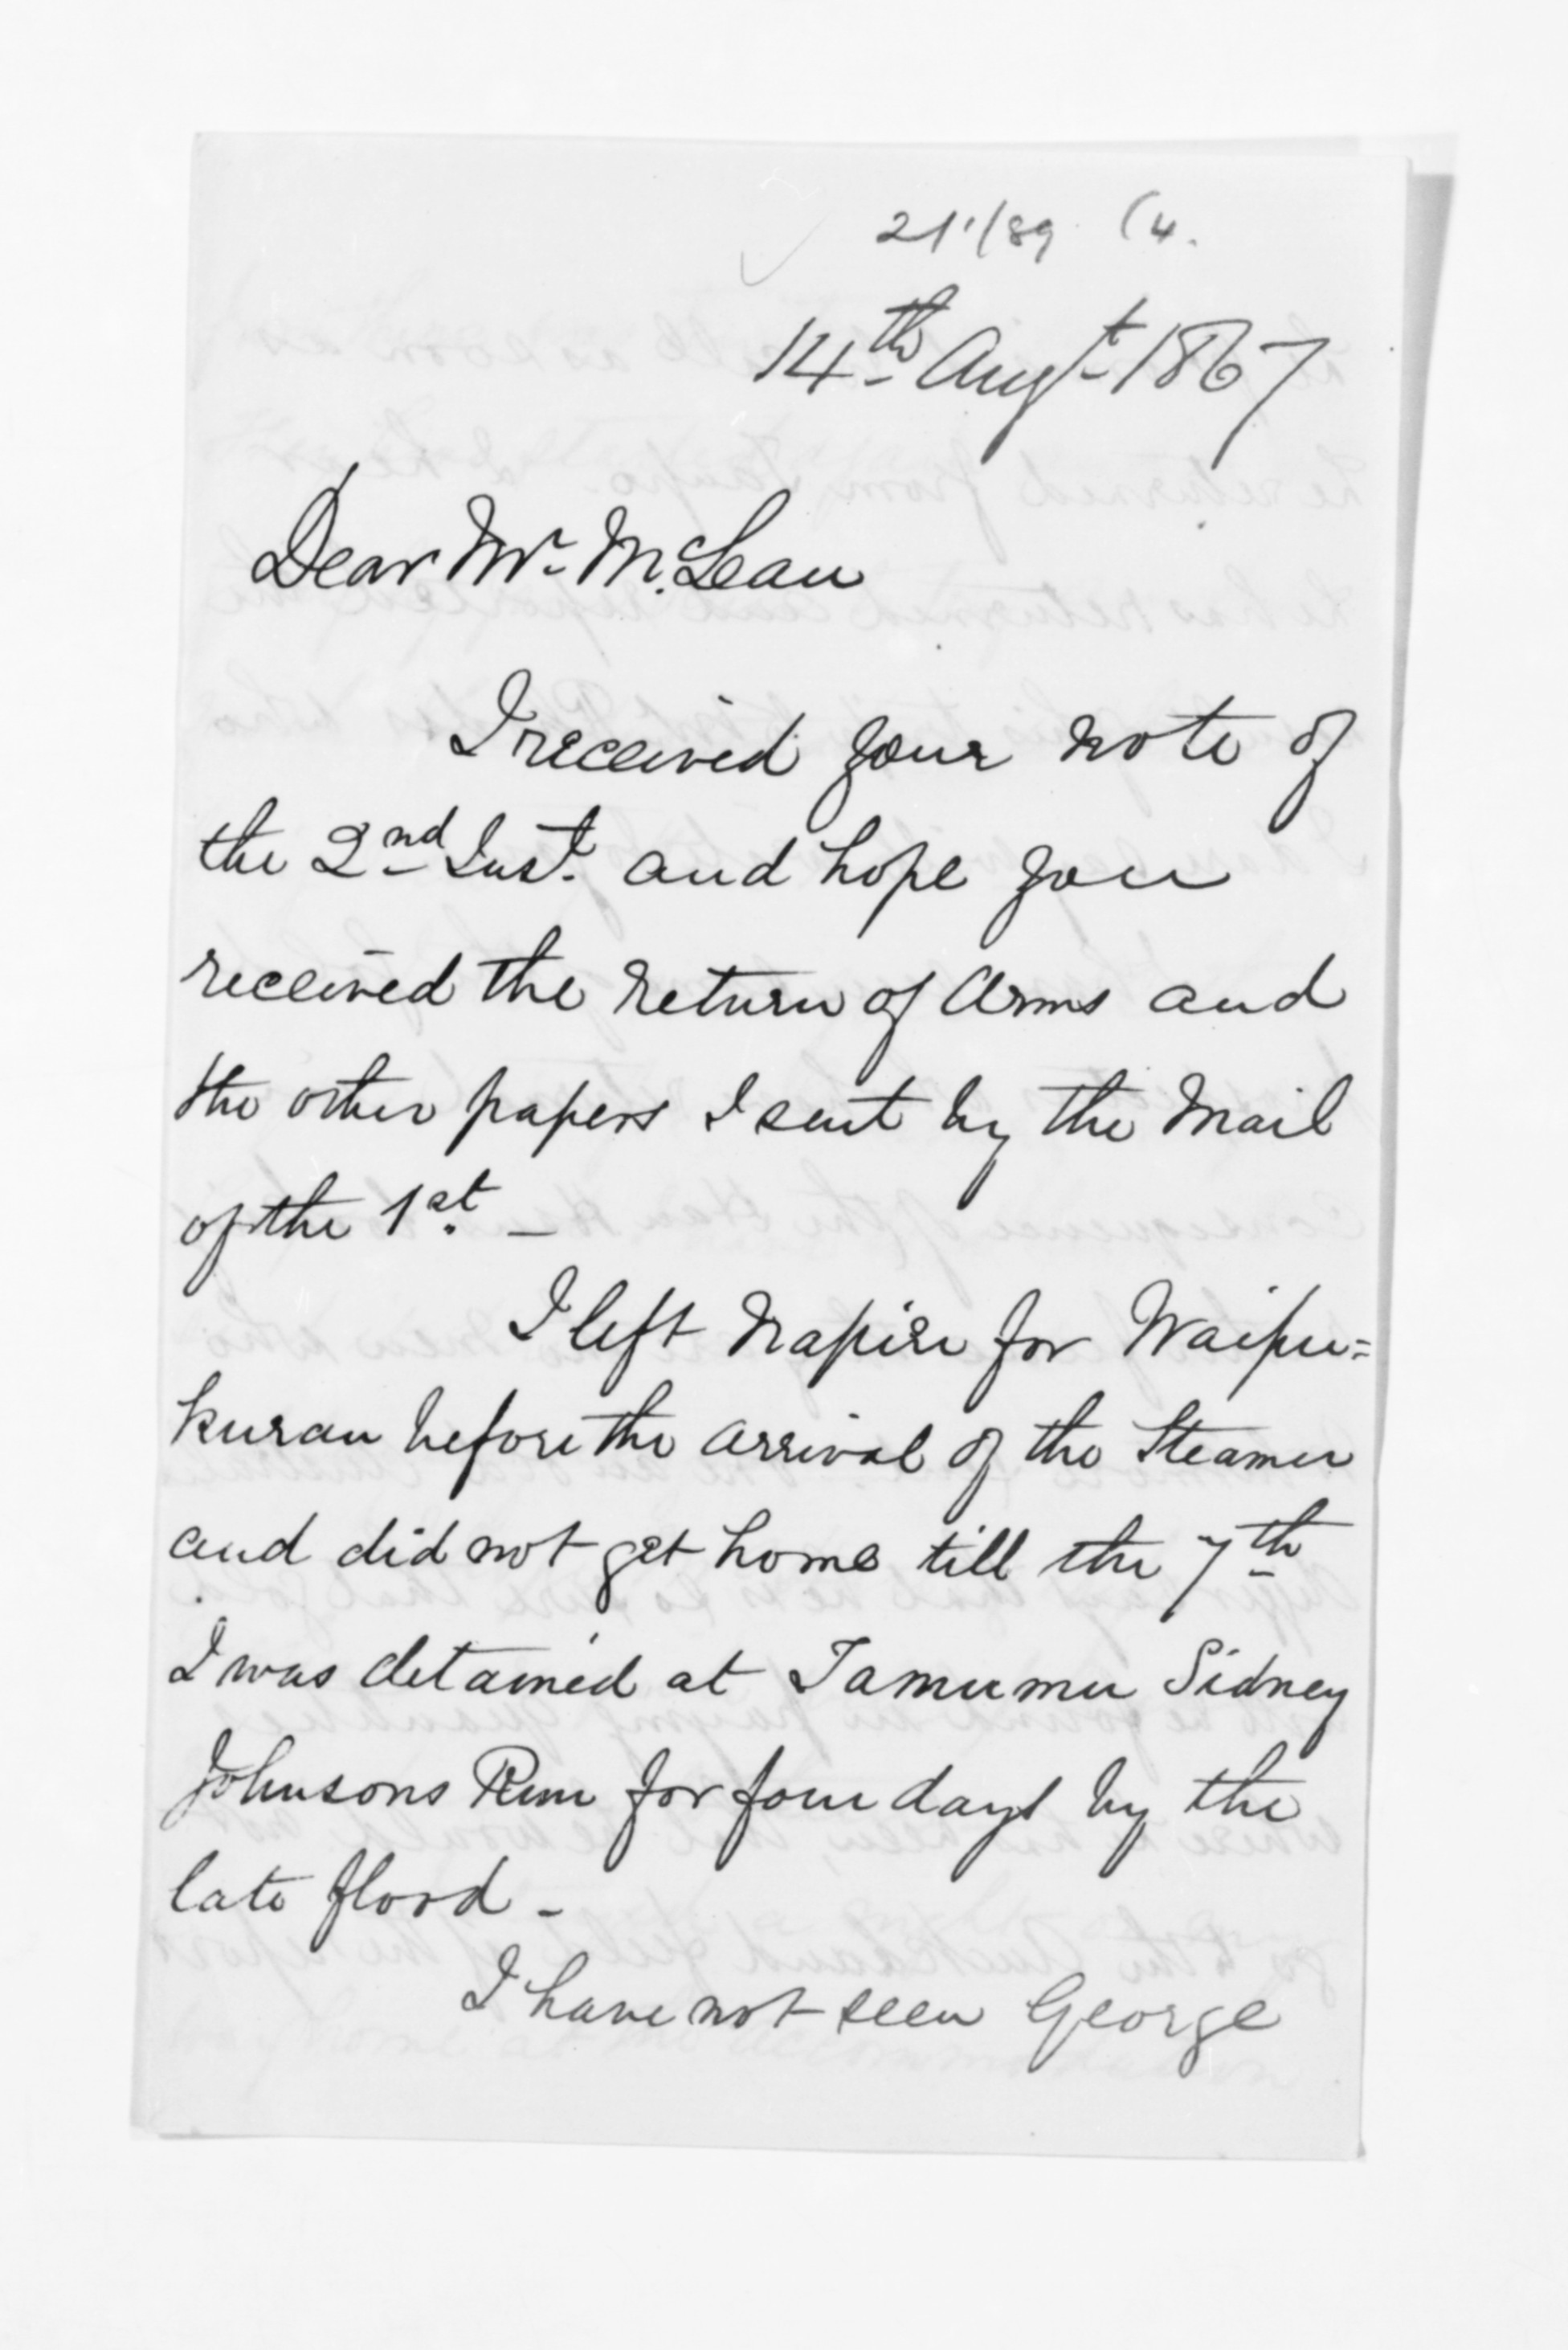 21'/89 (4.
14th Augt 1867
Dear Mr. McLean
I received your note of
the 2nd Inst. and hope you
received the return of Arms and
the other papers I sent by the Mail
of the 1st. —
I left Napier for Waipu=
kurau before the arrival of the Steamer
and did not get home till the 7th
I was detained at Tamumu Sidney
Johnsons Run for four days by the
late flood –
I have not seen George